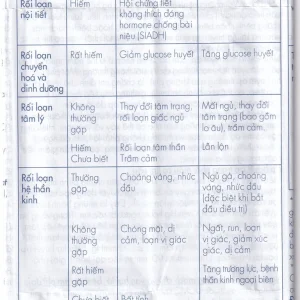 Rối loạn nội tiết
Hiếm
Hội chứng tiết
không thích đáng
hormone chống bài
niệu (SIADH)
Rối loạn
chuyển
hoá và
dinh dưỡng
Rất hiếm
Giảm glucose huyết
Tăng glucose huyết
Rối loạn
tâm lý
Không
thường
gặp
Thay đổi tâm trạng,
rối loạn giấc ngủ
Mất ngủ, thay đổi
tâm trạng (bao gồm
lo âu), trầm cảm.
Hiếm
Chưa biết
Rối loạn tâm thần
Trầm cảm
Lẫn lộn
Rối loạn
hệ thần
kinh
Thường
gặp
Choáng váng, nhức
đầu
Ngủ gà, choáng
váng, nhức đầu
(đặc biệt khi bắt
đầu điều trị)
Không
thường
gặp
Chóng mặt, dị
cảm, loạn vị giác
Ngất, run, loạn
vị giác, giảm xúc
giác, dị cảm
Rất hiếm
gặp
Tăng trương lực, bệnh
thần kinh ngoại biên
Chưa biết